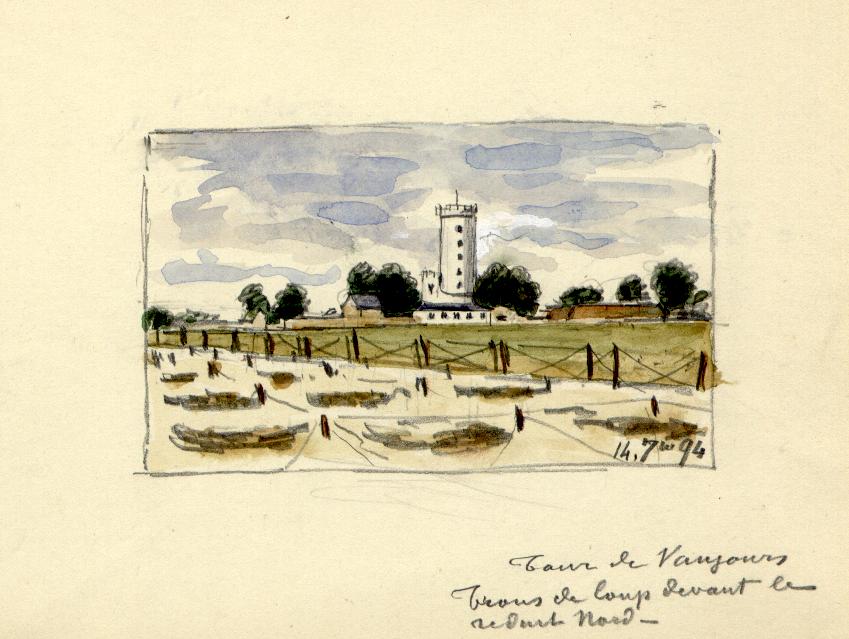 14. 7re 94
Tour de Vaujours
Trous de loup devant le
reduit Nord –